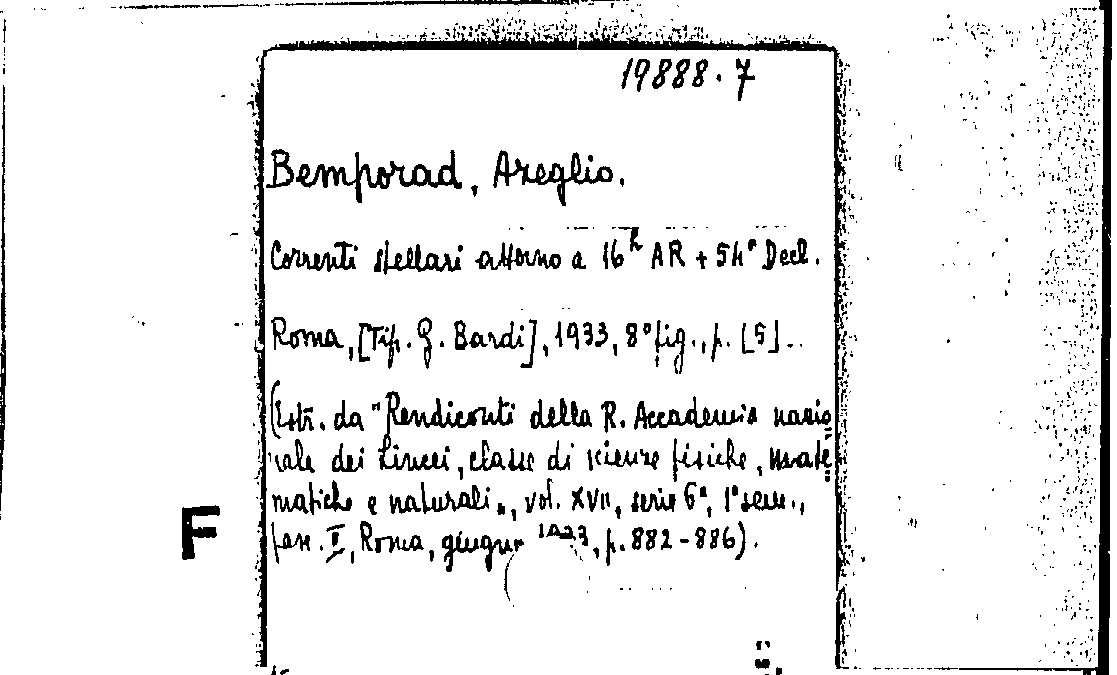 19888.7
Bemporad, Azeglio.
Correnti stellari attorno a 16h AR + 54° Decl.
Roma, [Tip. G. Bardi], 1933, 8° fig., p. [5].
(Estr. da "Rendiconti della R. Accademia nazio
nale dei Lincei, classe di scienze fisiche, mate
matiche e naturali", vol. XVII, serie 6ª, 1° sem.,
F
fasc. II, Roma, giugno 1933, p. 882-886).